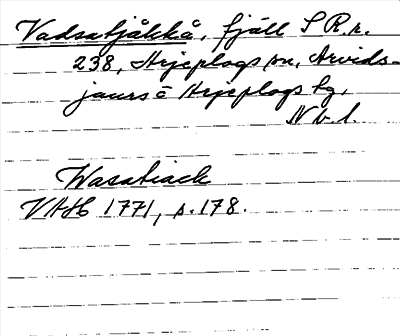 Vadsatjåkkå, fjäll S R.r.
238, Arjeplogs sn, Arvids-
jaurs o Arjeplogs tg,
Nb.l.
Wasatiack
VAH 1771, s. 178.